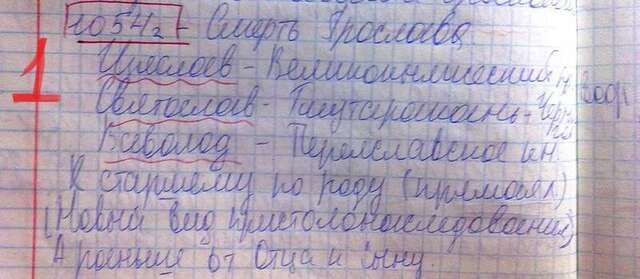 1054г - Смерть Ярослава
1
Изяслав - Великокняжеский
Святослав - Тмутаракань + Чер
Всеволод - Переяславское кн.
К старшему по роду (
(Новый вид престолонаследования)
А раньше от Отца к сыну